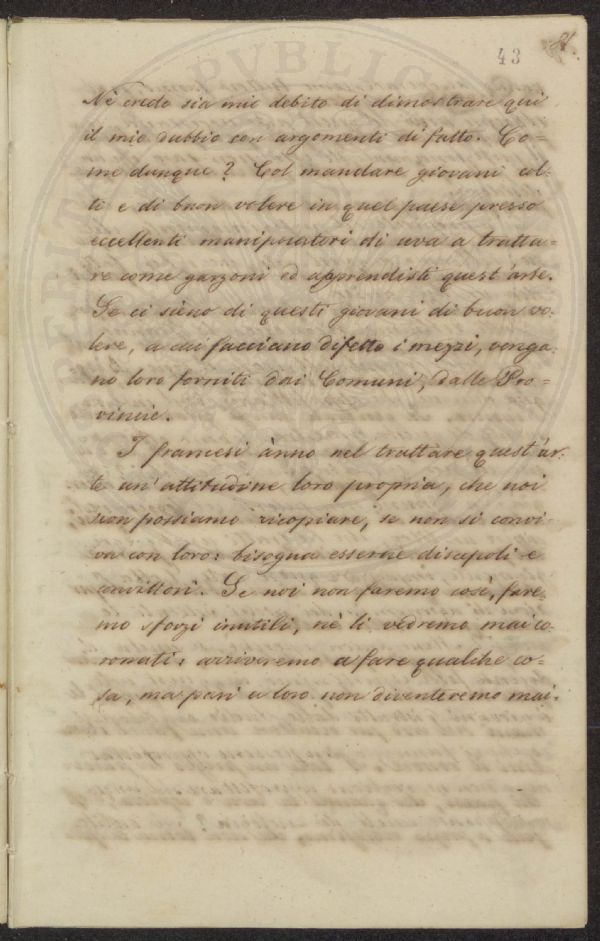 43
Nè credo sia mio debito di dimostrare quì
il mio dubbio con argomenti di fatto. Co=
me dunque? Col mandare giovani col-
ti e di buon volere in quel paese presso
eccellenti manipolatori di uva a tratta-
re come garzoni ed apprendisti quest'arte.
Se ci sieno di questi giovani di buon vo-
lere, a cui facciano difetto i mezzi, venga-
no loro forniti dai Comuni, dalle Pro=
vincie.
I francesi ànno nel trattare quest'ar-
te un'attitudine loro propria, che noi
non possiamo ricopiare, se non si convi-
va con loro: bisogna esserne discepoli e
convittori. Se noi non faremo così, fare-
mo sforzi inutili, nè li vedremo mai co-
ronati: arriveremo a fare qualche co-
sa, ma pari a loro non diventeremo mai.
PVBLIC